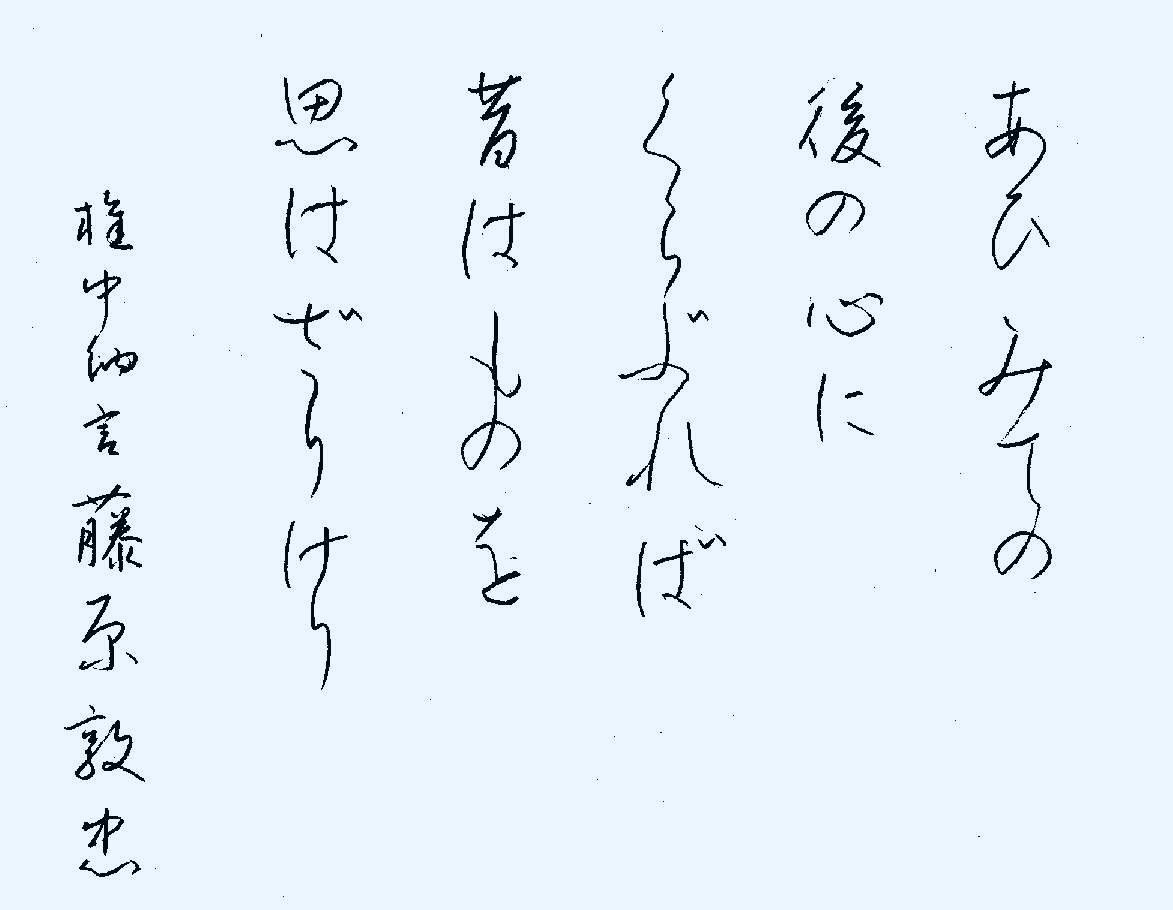 あひみての
後の心に
くらぶれば
昔はものを
思はざりけり
権中納言藤原敦忠